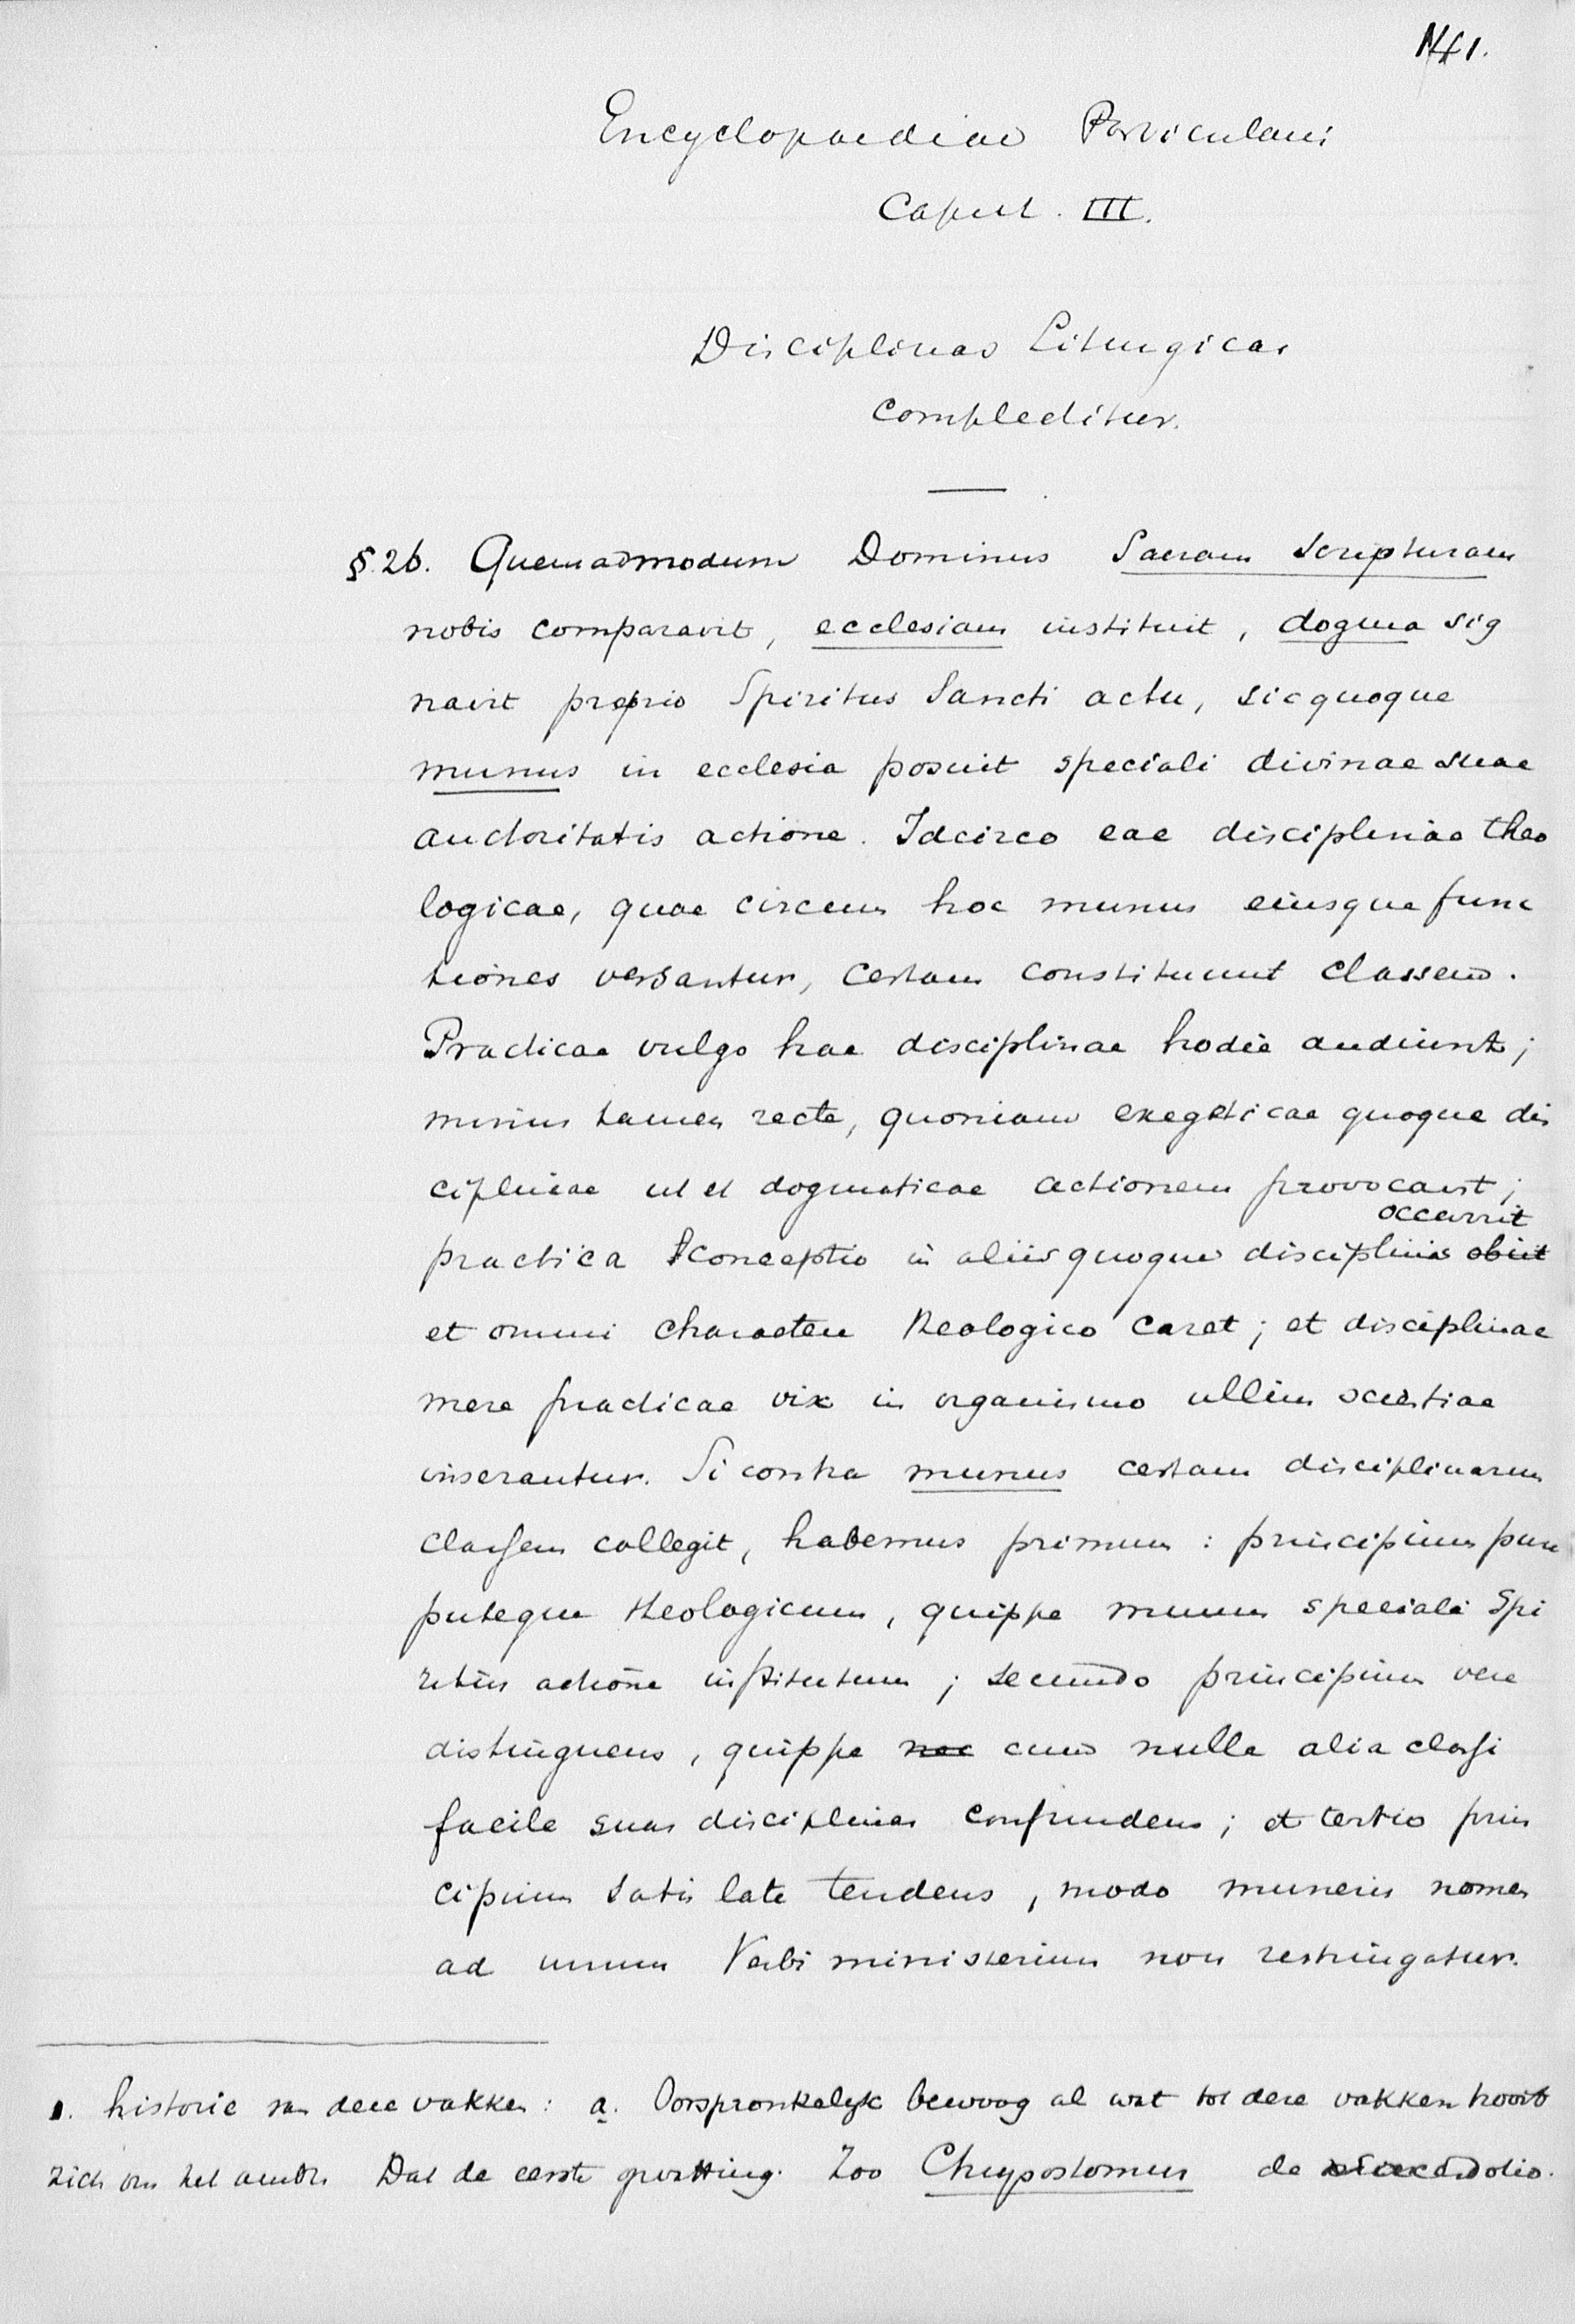 141.
Encyclopaediae Particularis
Caput. III.
Disciplinas Liturgicas
complectitur.
§.26. Quemadmodum Dominus Sacram Scripturam
nobis comparavit, ecclesiam instituit, dogma sig
navit proprio Spiritus Sancti actu, sic quoque
munus in ecclesia posuit speciali divinae suae
auctoritatis actione. Idcirco eae disciplinae theo
logicae, quae circum hoc munus eiusque func
tiones versantur, certam constituunt classem.
Practicae vulgo hae disciplinae hodie audiunt;
minus tamen recte, quoniam exegeticae quoque dis
ciplinae ut et dogmaticae actionem provocant;
occurrit
practica conceptio in aliis quoque disciplinis obiit
et omni charactere theologico caret; et disciplinae
mere practicae vix in organismo ullius scientiae
inserantur. Si contra munus certam disciplinarum
classem collegit, habemus primum: principium pure
puteque theologicum, quippe munus speciali Spi
ritus actione institutum; secundo principium vere
distinguens, quippe nec cum nulla alia classi
facile suas disciplinas confundens; et tertio prin
cipium satis late tendens, modo muneris nomen
ad unum Verbi ministerium non restringatur.
1. historie van deze vakken: a. Oorspronkelyk bewoog al wat tot deze vakken hoort
zich om het ambt. Dat de eerste opvatting. Zoo Chrysostomus de Sacerdotio.